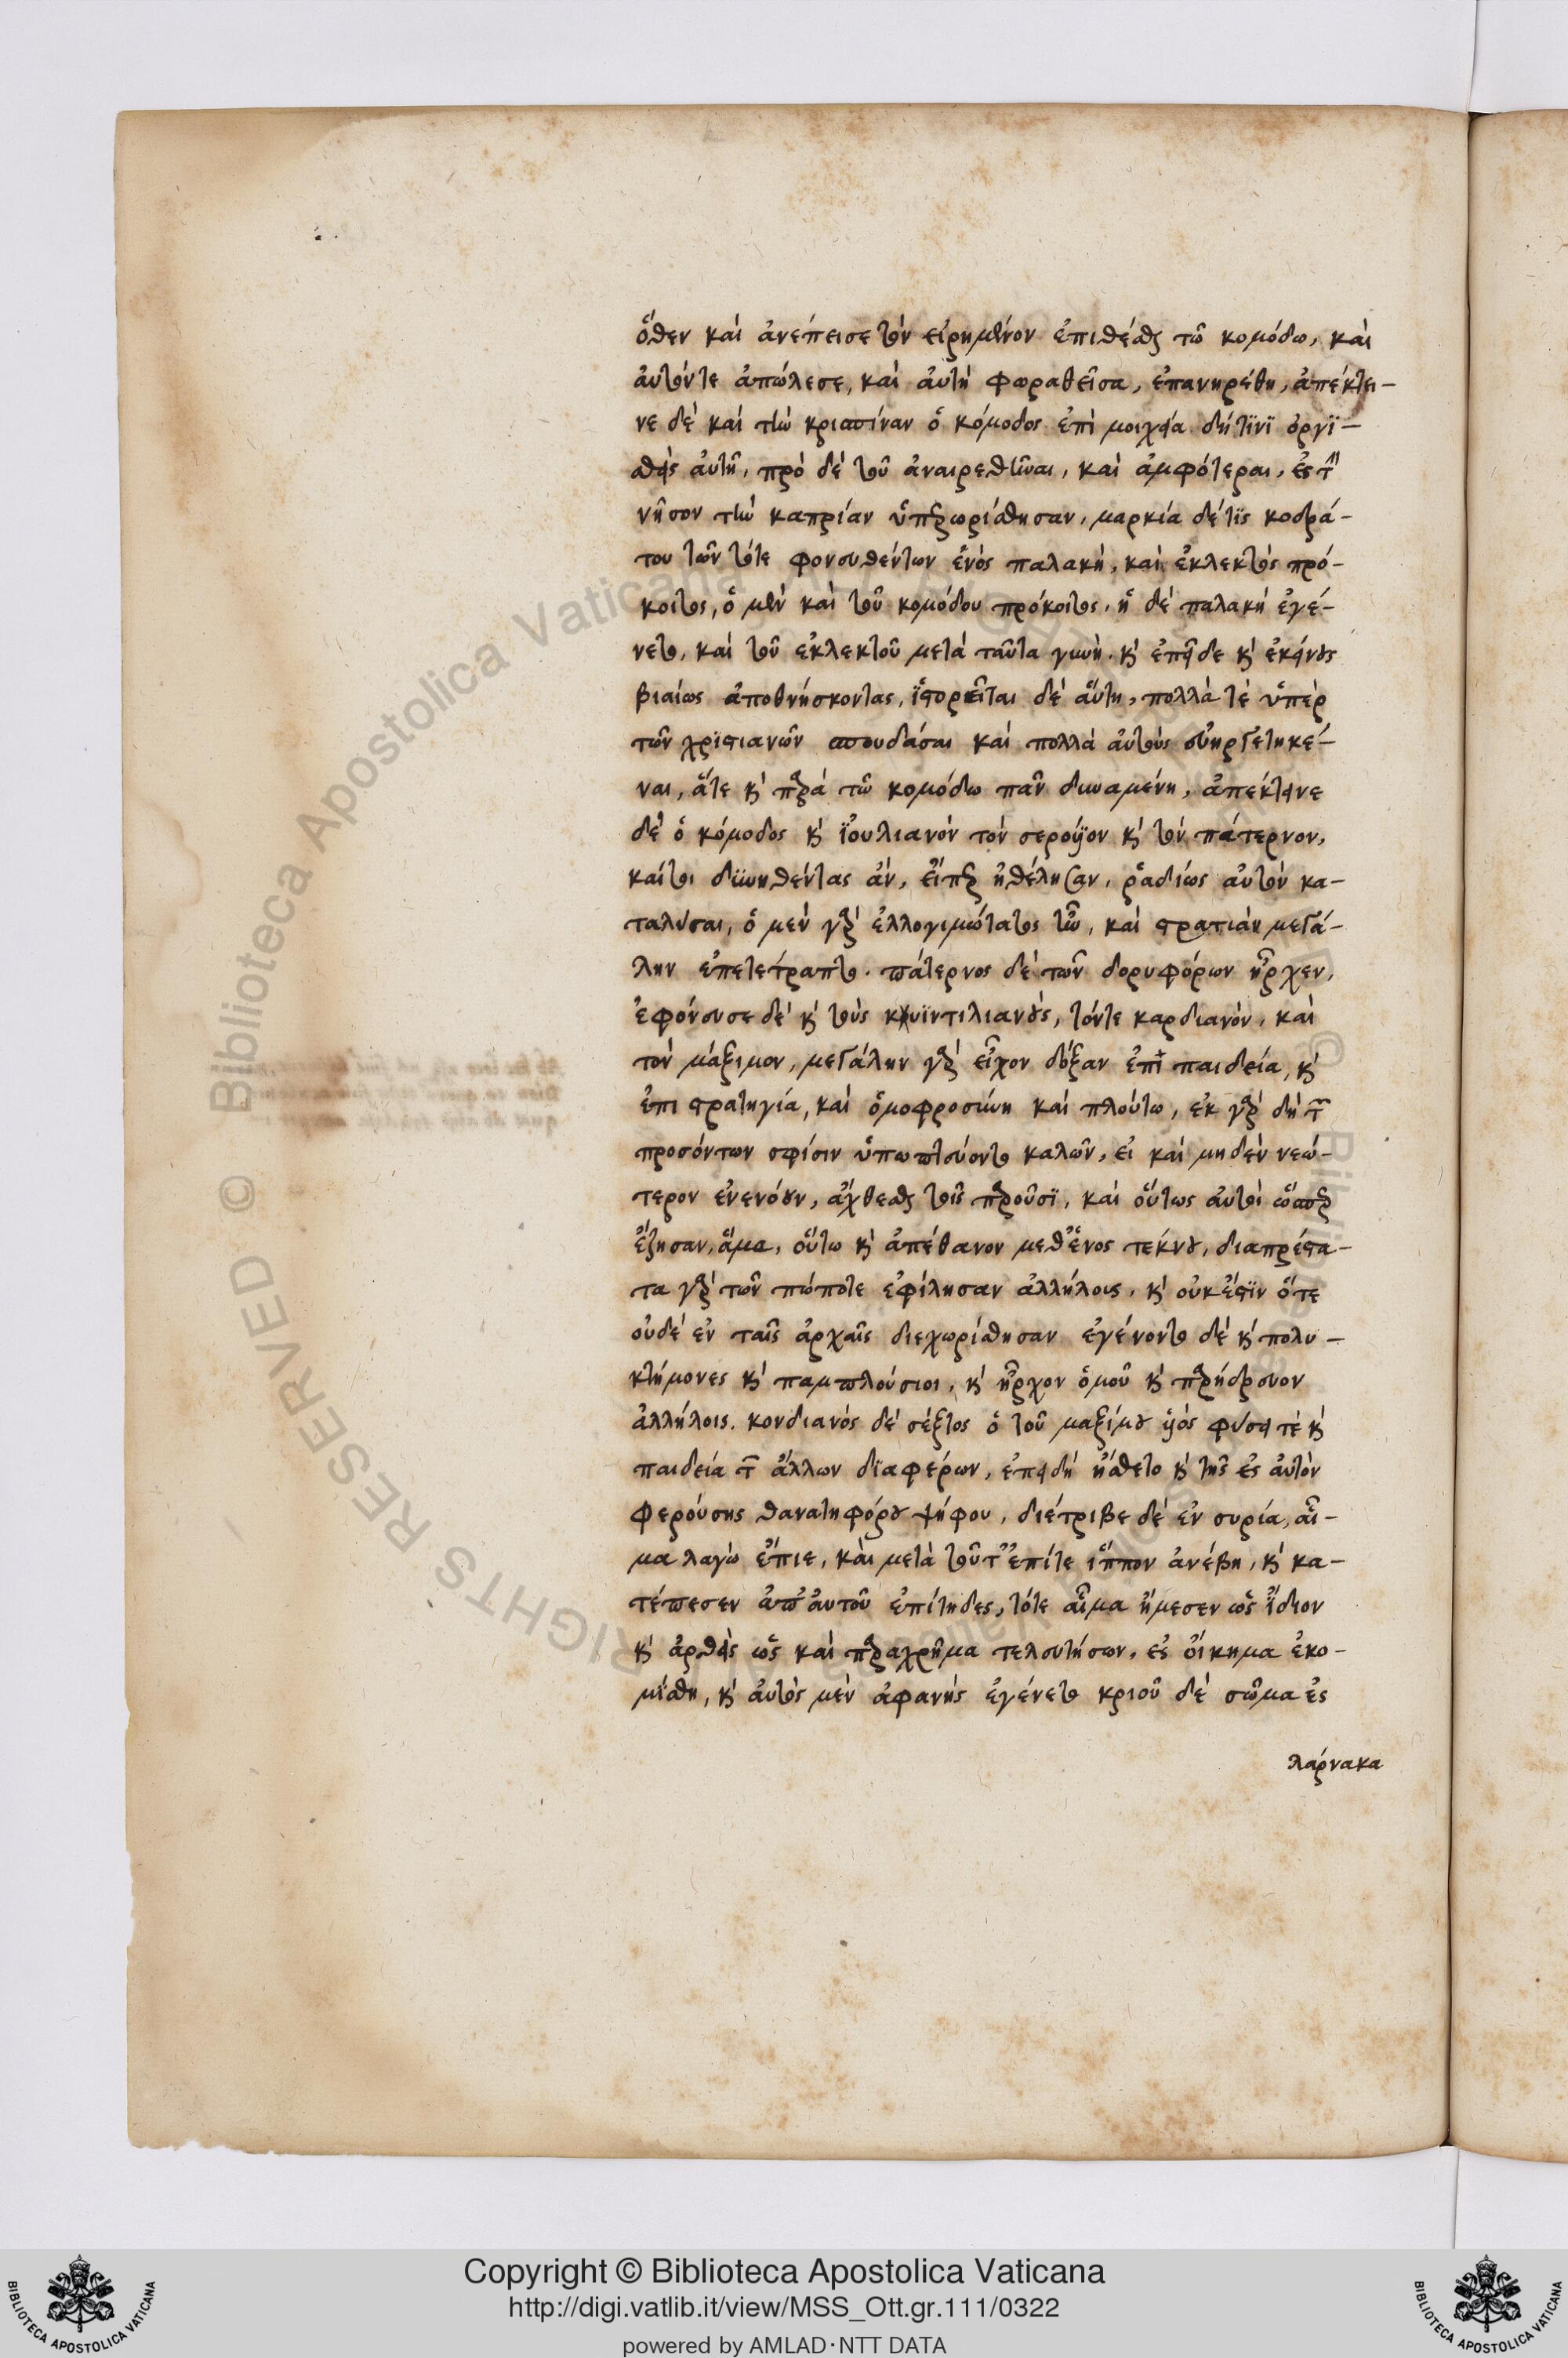 ὅθεν καὶ ἀνέπεισε τὸν εἰρημένον ἐπιθέσθαι τῶ κομόδω, καὶ
ἀυτόντε ἀπώλεσε, καὶ ἀυτὴ φωραθεῖσα, ἐπανηρέθη, ἀπέκτει-
νε δὲ καὶ τὴν κρισπίναν ὁ κόμοδος ἐπὶ μοιχεία δή τϊνϊ ὀργϊ-
σθεὶς ἀυτῆ, πρὸ δὲ τοῦ ἀναιρεθῆναι, καὶ ἀμφότεραι, ἐς τὴν
νῆσον τὴν καπρίαν ὑπερωρίσθησαν, μαρκία δέ τϊς κοδρά-
του τῶν τότε φονευθέντων ἑνὸς παλακὴ, καὶ ἐκλεκτὸς πρό-
κοιτος, ὁ μὲν καὶ τοῦ κομόδου πρόκοιτος, ἡ δὲ παλακὴ ἐγέ-
νετο, καὶ τοῦ ἐκλεκτοῦ μετὰ ταῦτα γυνὴ. κ̀ ἐπεῖδε κ̀ ἐκείνους
βιαίως ἀποθνήσκοντας, ἱστορεῖται δὲ αὕτη, πολλά τὲ ὑπὲρ
τῶν χρϊστιανῶν σπουδάσαι καὶ πολλὰ ἀυτοὺς εὐηργετηκέ-
ναι, ἅτε κ̀ παρὰ τῶ κομόδω πᾶν δυναμένη, ἀπέκτεινε
δὲ ὁ κόμοδος κ̀ ἰουλιανὸν τὸν σερούϊον κ̀ τὸν πάτερνον,
καίτοι δϋνηθέντας ἂν, εἴπερ ἠθέλησαν, ῥαδίως αὐτὸν κα-
ταλῦσαι, ὁ μὲν γὰρ ἐλλογιμώτατος ἦν, καὶ στρατιὰν μεγά-
λην ἐπετέτραπτο. πάτερνος δὲ τῶν δορυφόρων ἦρχεν,
ἐφόνευσε δὲ κ̀ τοὺς κυϊντιλιανοὺς, τόντε καρδιανὸν, καὶ
τὸν μάξιμον, μεγάλην γὰρ εἶχον δόξαν ἐπὶ παιδεία, κ̀
ἐπι στρατηγία, καὶ ὁμοφροσύνη καὶ πλούτω, ἐκ γὰρ δὴ τῶν
προσόντων σφίσιν ὑπωπτεύοντο καλῶν, εἰ καὶ μηδὲν νεώ-
τερον ἐνενόουν, ἄχθεσθαι τοῖς παροῦσϊ, καὶ οὕτως ἀυτοὶ ὥσπερ
ἔζησαν, ἅμα, οὕτω κ̀ ἀπέθανον μεθ ἑνος τέκνου, διαπρέστα-
τα γὰρ τῶν πώποτε ἐφίλησαν ἀλλήλοις, κ̀ οὐκ ἔστϊν ὅτε
οὐδὲ ἐν ταῖς ἀρχαῖς διεχωρίσθησαν ἐγένοντο δὲ κ̀ πολυ-
κτήμονες κ̀ παμπλούσιοι, κ̀ ἦρχον ὁμοῦ κ̀ παρήδρευον
ἀλλήλοις. κονδιανὸς δὲ σέξτος ὁ τοῦ μαξίμου ὑὸς φύσει τὲ κ̀
παιδεία τῶν ἄλλων δϊαφέρων, ἐπειδὴ ἤσθετο κ̀ τῆς ἐς ἀυτὸν
φερούσης θανατηφόρου ψήφου, διέτριβε δὲ ἐν συρία, αἷ-
μα λαγὼ ἔπιε, καὶ μετὰ τοῦτ' ἐπίτε ἵππον ἀνέβη, κ̀ κα-
τέπεσεν ἀπ' ἀυτοῦ ἐπίτηδες, τότε αἷμα ἤμεσεν ὡς ἴδιον
κ̀ ἀρθεὶς ὡς καὶ παραχρῆμα τελευτήσων, ἐς οἴκημα ἐκο-
μίσθη, κ̀ ἀυτὸς μὲν ἀφανὴς ἐγένετο κριοῦ δὲ σῶμα ἐς
λάρνακα
Copyright © Biblioteca Apostolica Vaticana
http://digi.vatlib.it/view/MSS_Ott.gr.111/0322
powered by AMLAD·NTT DATA